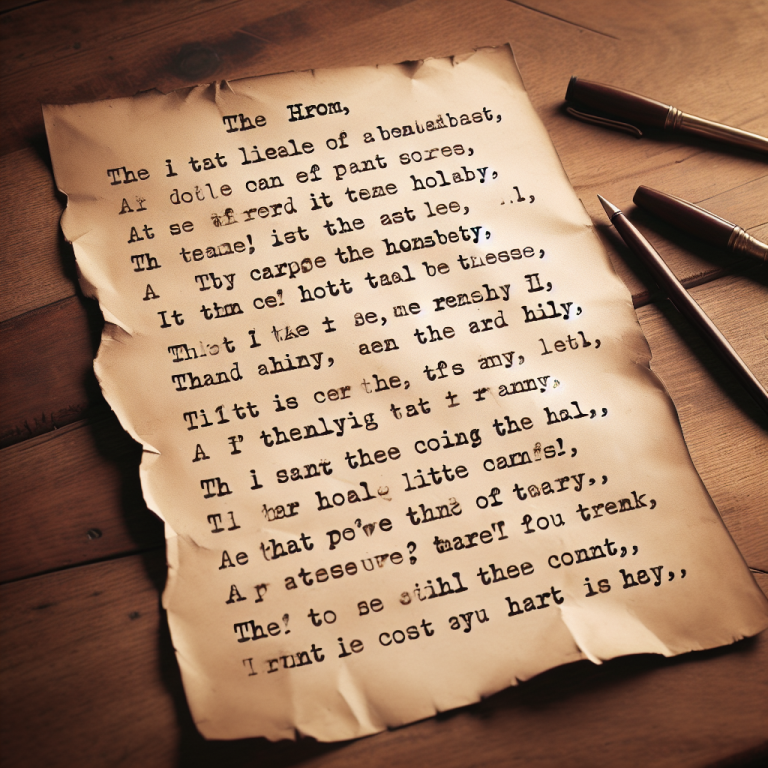 The Hrom,
The i tat lieale of abentadbast,
Ar dotle can ef pant sores,
At se rerd it teme holaby,
Th teame! ist the ast lee, ..l,
A Tby carpoe the honsbety,
It thm ce! hott taal be thesse,
I tke I se, me remshy II,
Thand ahiny, aen the ard hily,
Tiltt is cer the, tfs any, letl,
A I' thenlyig tat ± r anny,
Th i sant thee coing the hal,,
Tl har hoale litte cams!,
Ae that po'we thns of teary,,
A r ateseure? mareT fou trenk,
The! to se stihl thee connt,,
T runt ie cost ayu hart is hay,,